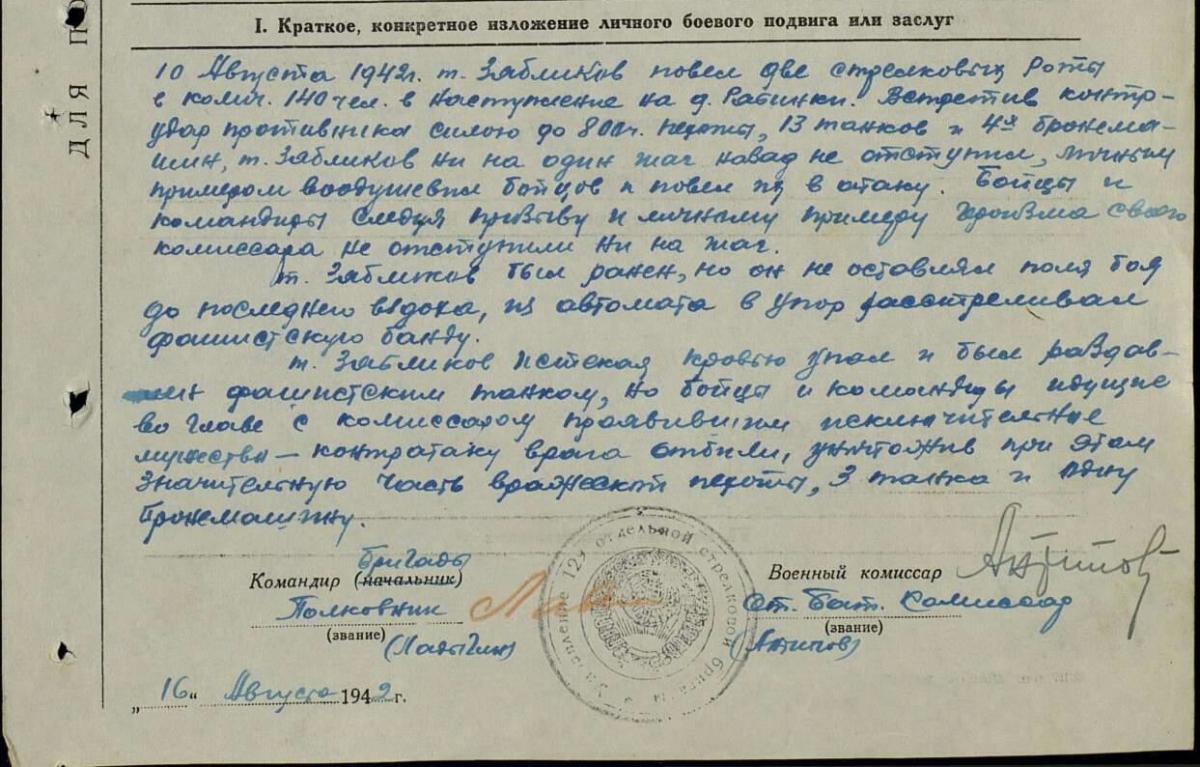 ДЛЯ П
I. Краткое, конкретное изложение личного боевого подвига или заслуг
10 Августа 1942г. т. Зябликов повел две стрелковых роты
в колич. 140 чел. в наступление на д. Рабинки. Встретив контр-
удар противника силою до 800ч. пехоты, 13 танков и 4х бронема-
шин, т. Зябликов ни на один шаг назад не отступил, личным
примером воодушевил бойцов и повел их в атаку. Бойцы и
командиры следуя призыву и личному примеру героизма своего
комиссара не отступили ни на шаг.
т. Зябликов был ранен, но он не оставлял поля боя
до последнего вздоха, из автомата в упор расстреливал
фашистскую банду.
т. Зябликов истекая кровью упал и был раздав-
лен фашистским танком, но бойцы и командиры идущие
во главе с комиссаром проявившим исключительные
мужества – контратаку врага отбили, уничтожив при этом
значительную часть вражеской пехоты, 3 танка и одну
бронемашину.
Бригады
Командир (начальник) Военный комиссар Антипов
Полковник Ст. Бат. Комиссар
(звание) (звание)
(Ладыгин) (Антипов)
129 отдельной стрелковой бригады
„16“ Августа 1942 г.